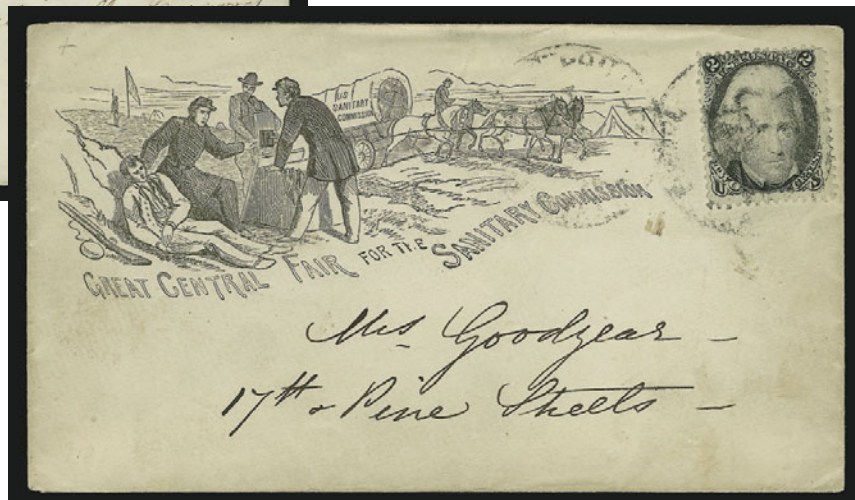 U.S
SANITARY
COMMISSION
GREAT CENTRAL FAIR FOR THE SANITARY COMMISSION
2 2
U S
Mrs Goodyear -
17th & Pine Streets -